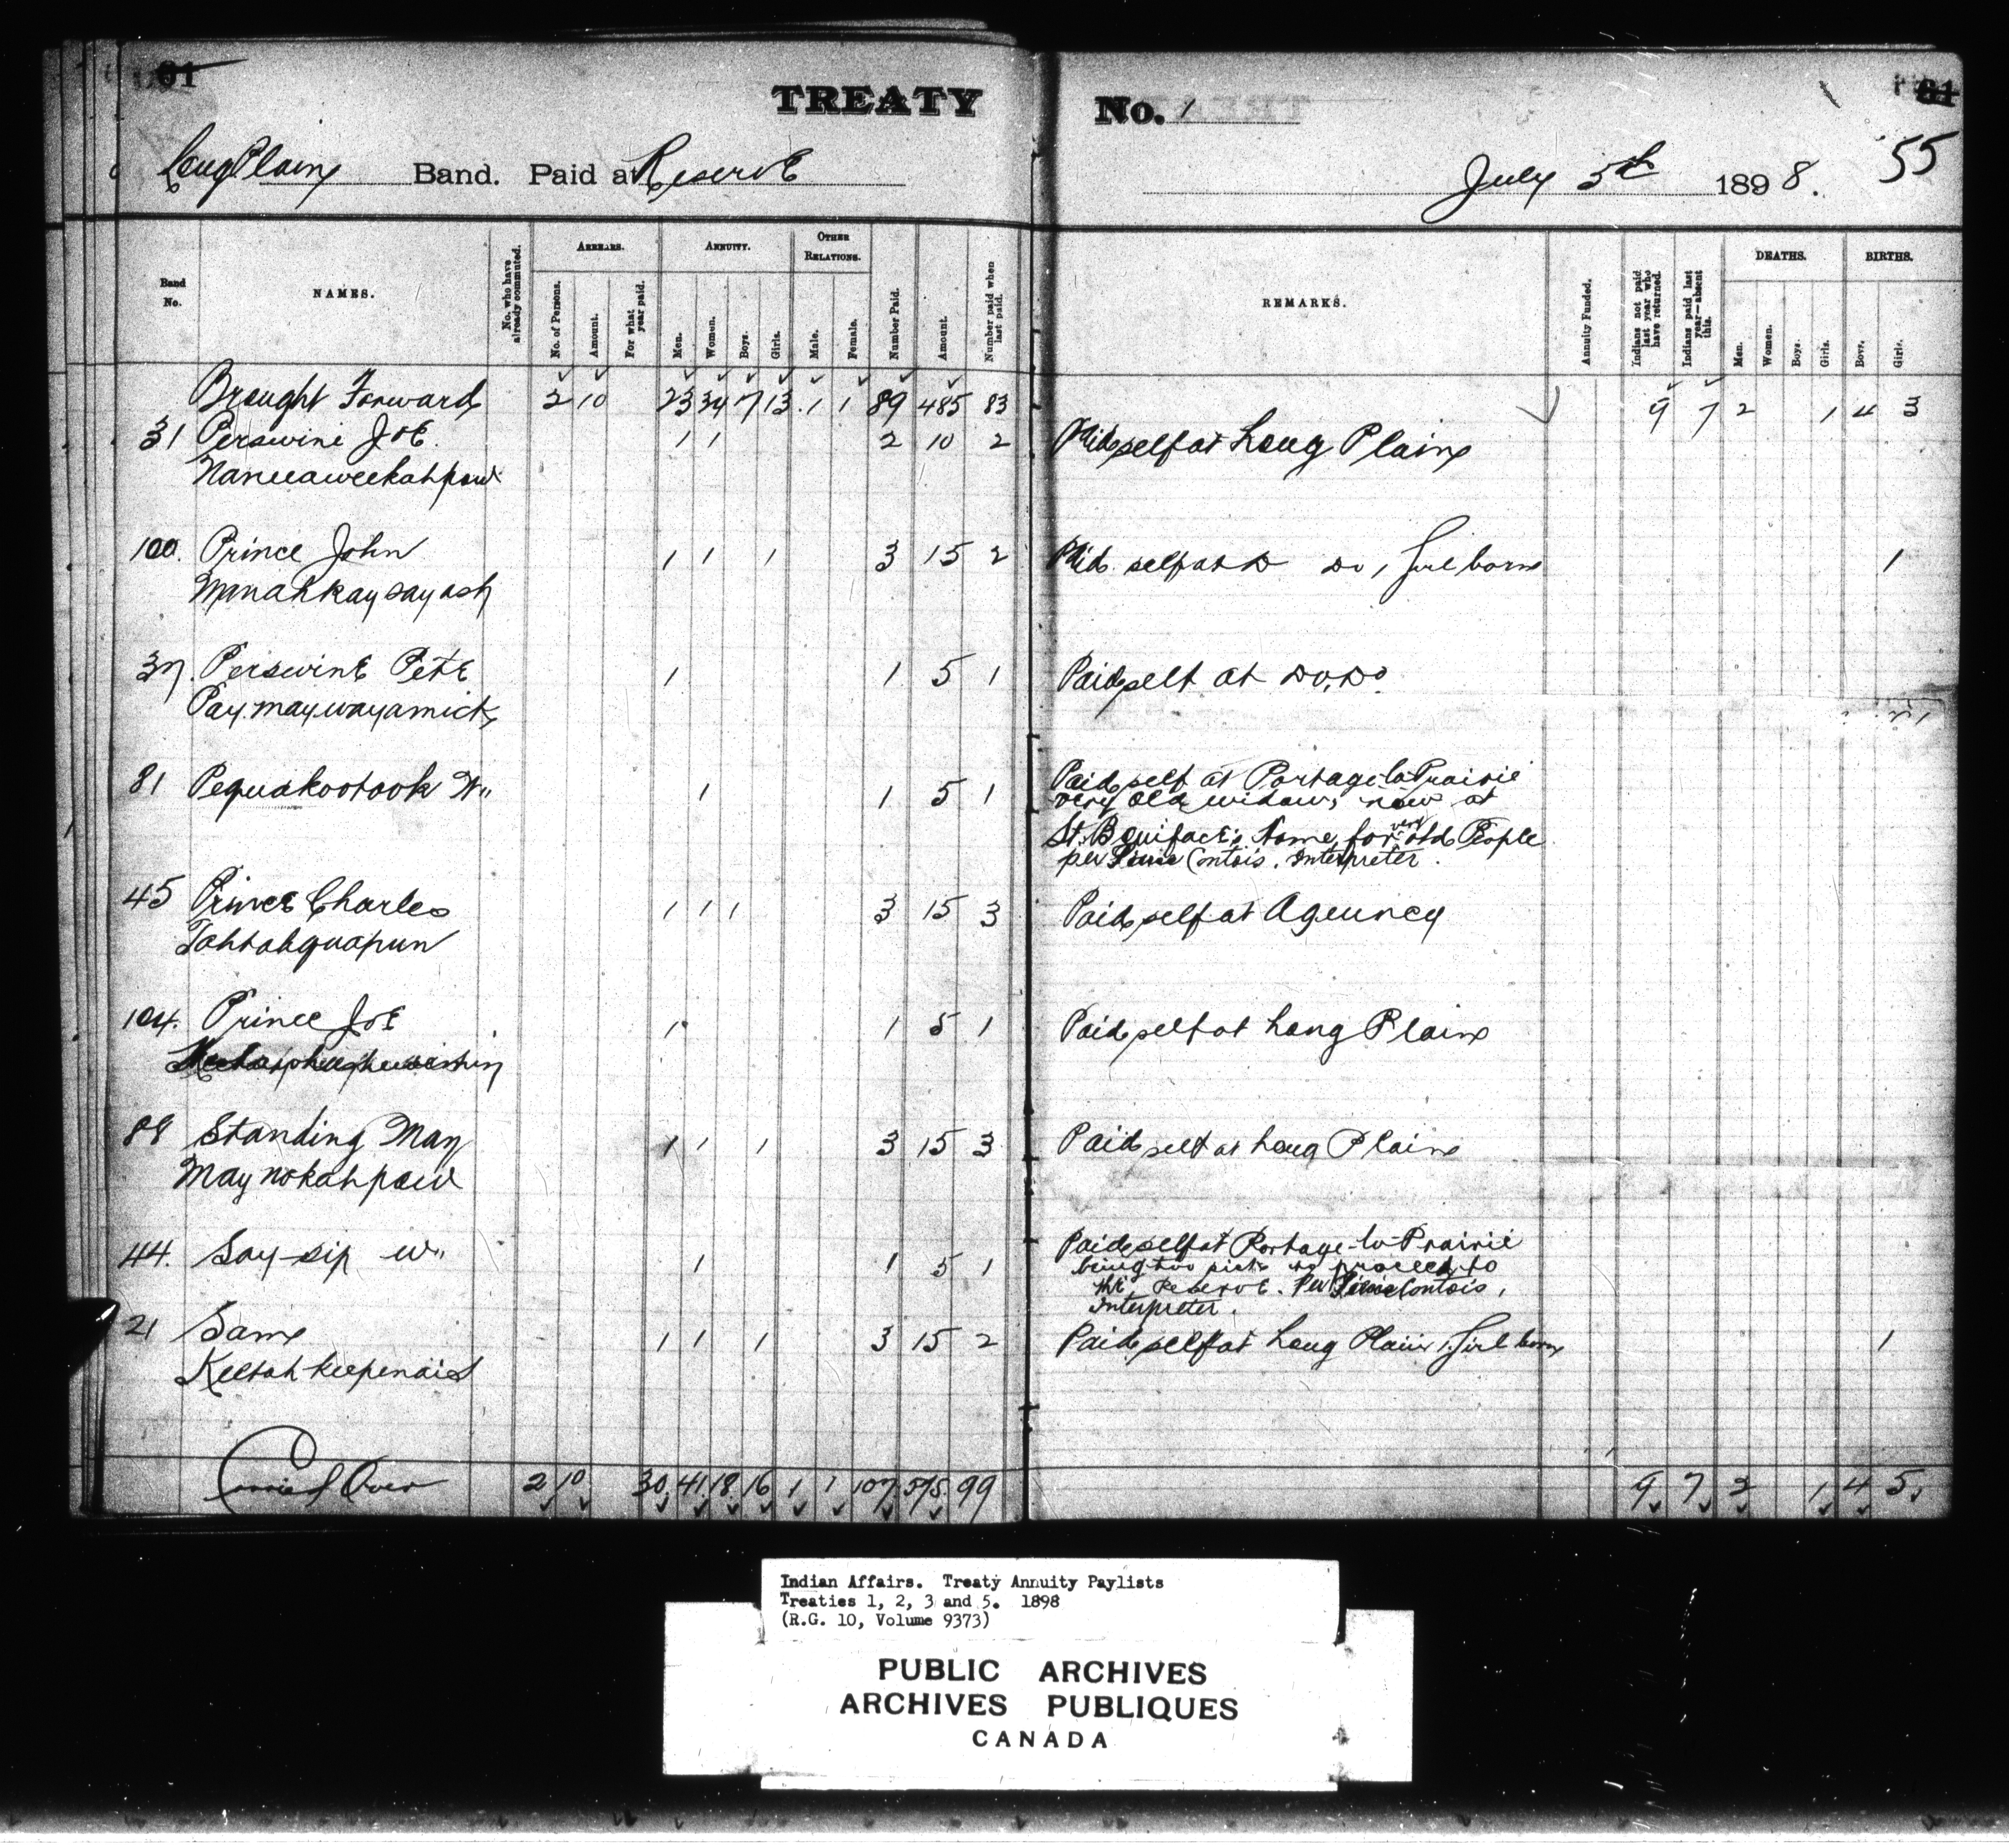 61
TREATY No. 1
81
55
Long Plain Band. Paid at Reserve July 5th 1898.
Band No.
NAMES.
No. who have already commuted.
ARREARS.
No. of Persons.
Amount.
For what year paid.
ANNUITY.
Men.
Women.
Boys.
Girls.
OTHER RELATIONS.
Male.
Female.
Number Paid.
Amount.
Number paid when last paid.
REMARKS.
Annuity Funded.
Indians not paid last year who have returned.
Indians paid last year—absent this.
DEATHS.
Men.
Women.
Boys.
Girls.
BIRTHS.
Boys.
Girls.
Brought Forward 2 10 23 34 7 13 1 1 89 485 83 9 7 2 1 4 3
31 Perswine Joe 1 1 2 10 2 Paid self at Long Plain
100. Prince John 1 1 1 3 15 2 Paid self at Do Do 1 Girl born 1
Manahkaysayash
37. Perswine Pete 1 1 5 1 Paid self at Do. Do.
Paymaywayamick
81 Pequakootook W" 1 1 5 1 Paid self at Portage la Prairie
very old widow, now at
St. Boniface's Home for very old People
per Contois. Interpreter.
45 Prince Charles 1 1 1 3 15 3 Paid self at Agency
Tahtahquapun
104. Prince Joe 1 1 5 1 Paid self at Long Plain
88 Standing Man 1 1 1 3 15 3 Paid self at Long Plain
Maynokahpow
44. Say-sip W" 1 1 5 1 Paid self at Portage-la-Prairie
being too sick to proceed to
the Reserve. Per Contois,
Interpreter.
21 Sam 1 1 1 3 15 2 Paid self at Long Plain 1 Girl born 1
Keetahkeepenais
Carried Over 2 10 30 41 18 16 1 1 107 575 99 9 7 2 1 4 5
Indian Affairs. Treaty Annuity Paylists
Treaties 1, 2, 3 and 5. 1898
(R.G. 10, Volume 9373)
PUBLIC ARCHIVES
ARCHIVES PUBLIQUES
CANADA